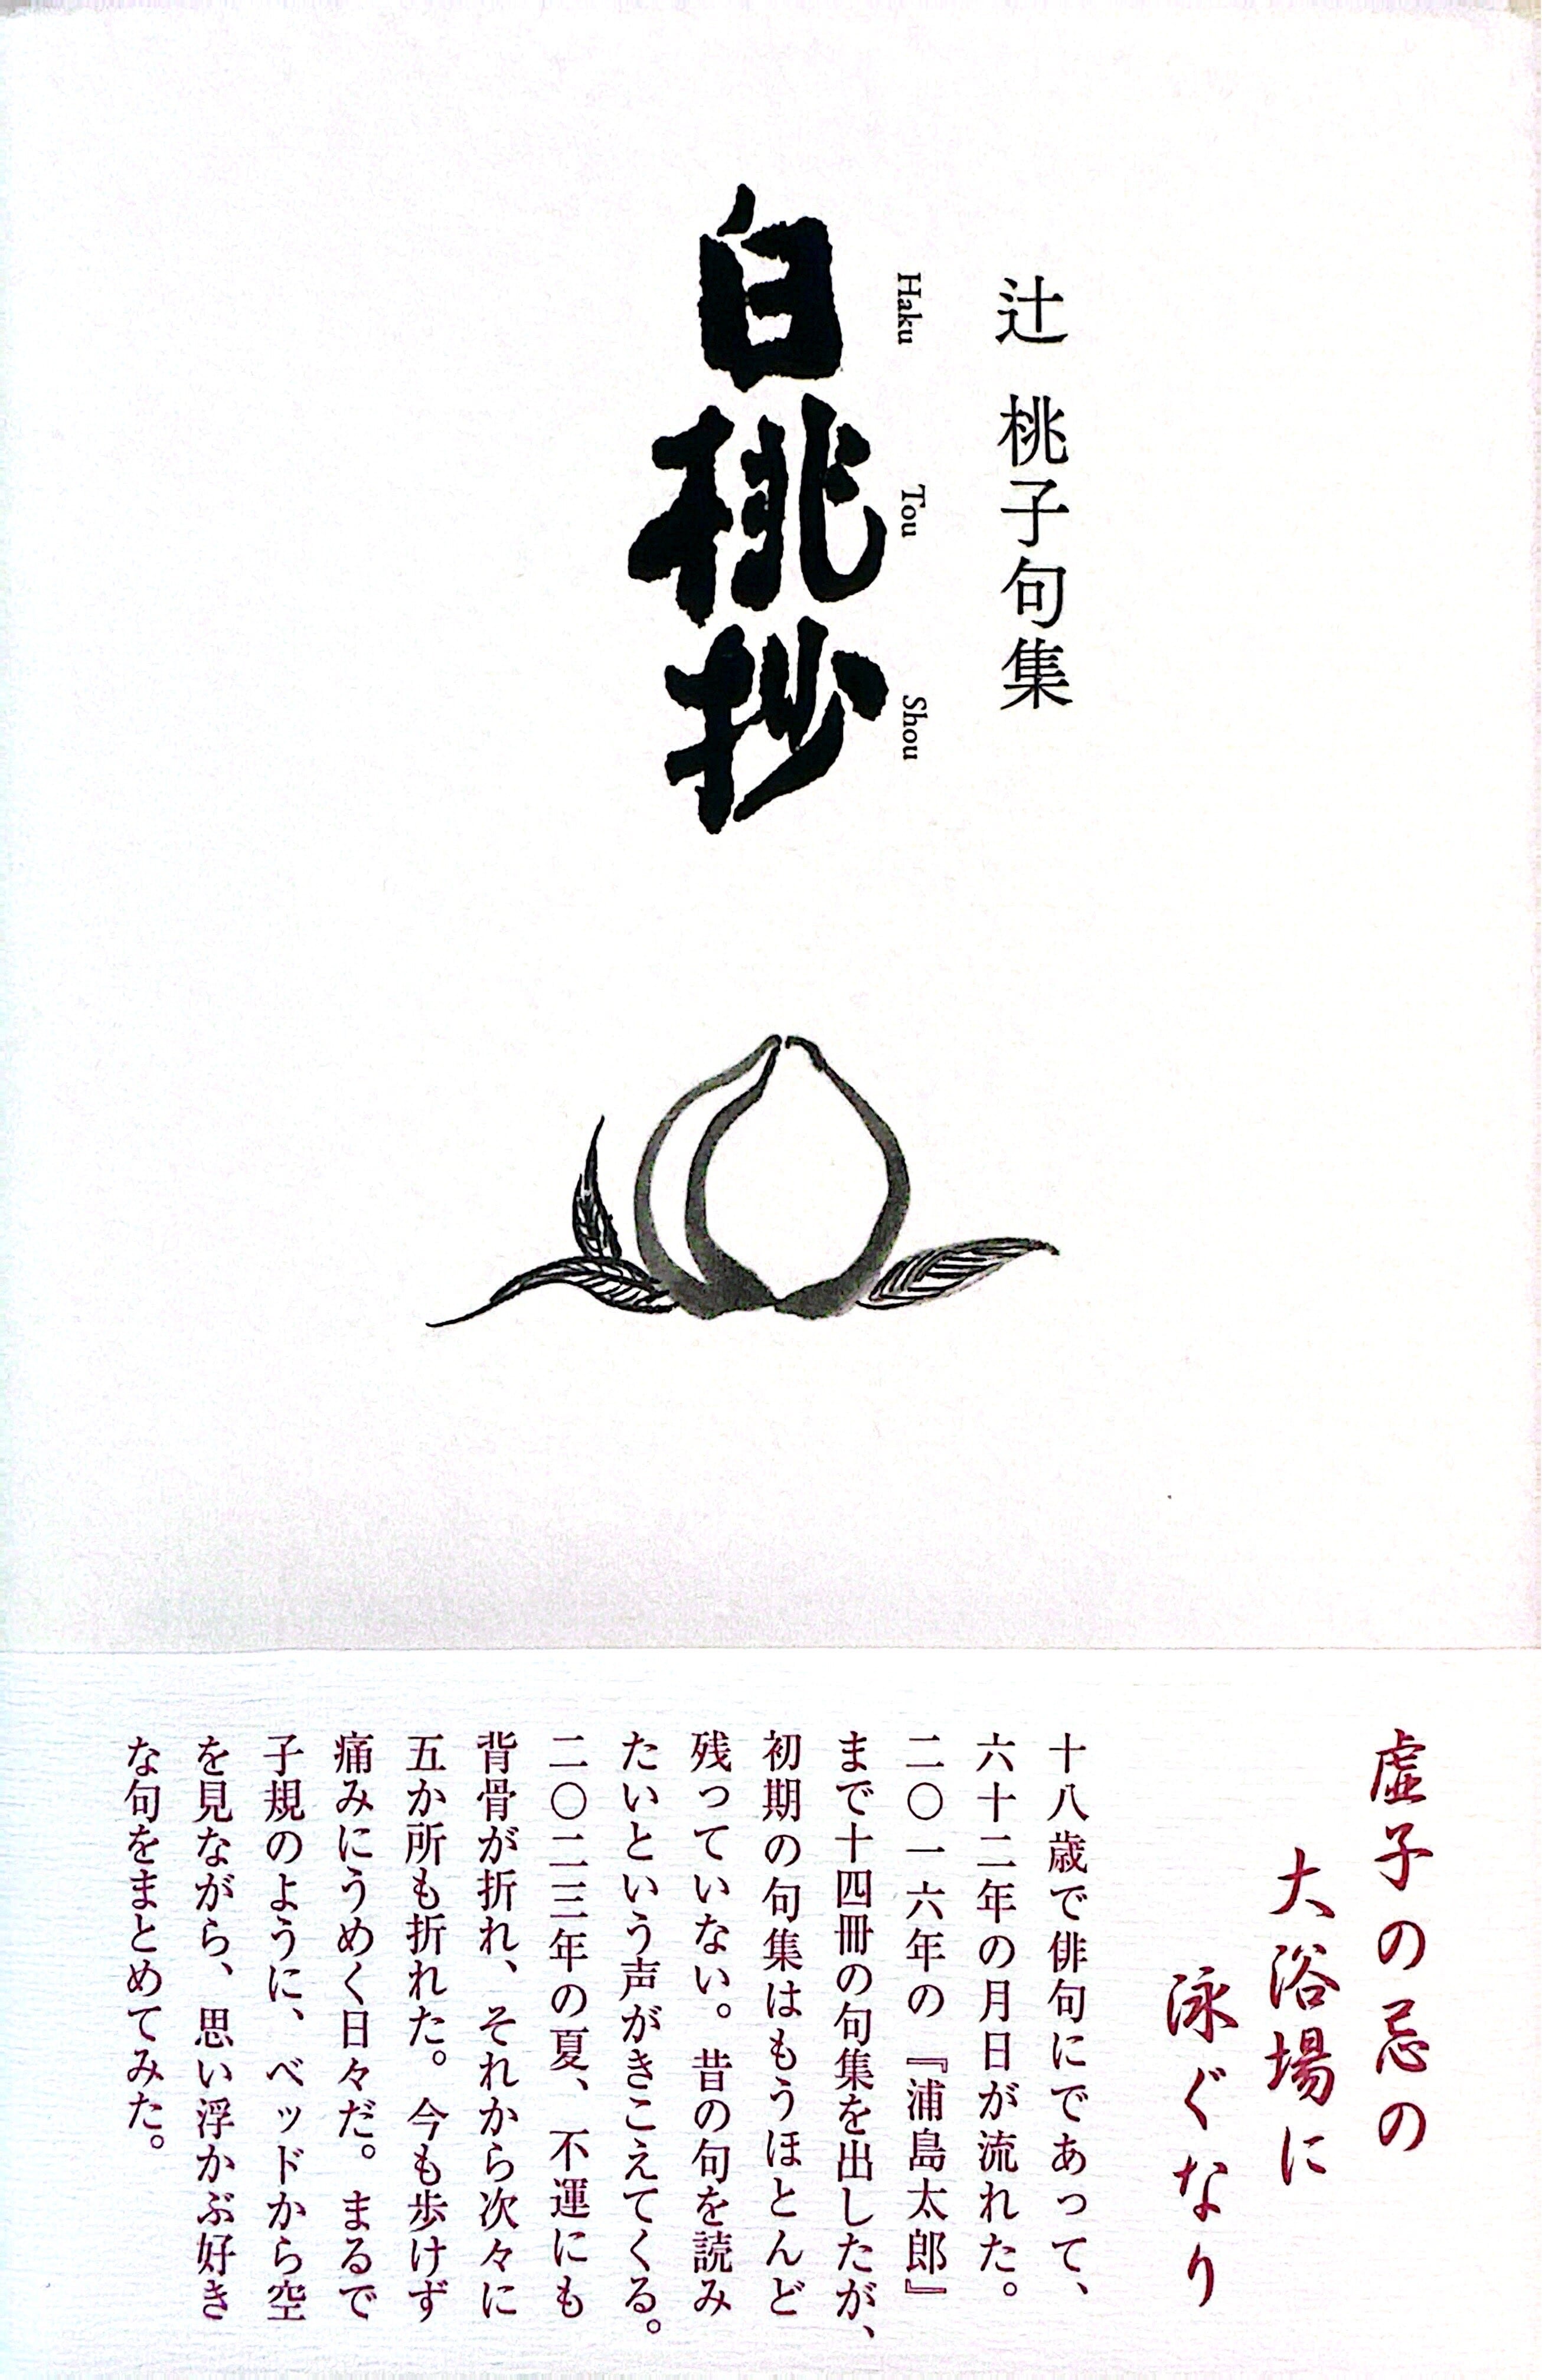 辻 桃子句集
白桃抄
Haku Tou Shou
虚子の忌の
大浴場に
泳ぐなり
十八歳で俳句にであって、
六十二年の月日が流れた。
二〇一六年の『浦島太郎』
まで十四冊の句集を出したが、
初期の句集はもうほとんど
残っていない。昔の句を読み
たいという声がきこえてくる。
二〇二三年の夏、不運にも
背骨が折れ、それから次々に
五か所も折れた。今も歩けず
痛みにうめく日々だ。まるで
子規のように、ベッドから空
を見ながら、思い浮かぶ好き
な句をまとめてみた。